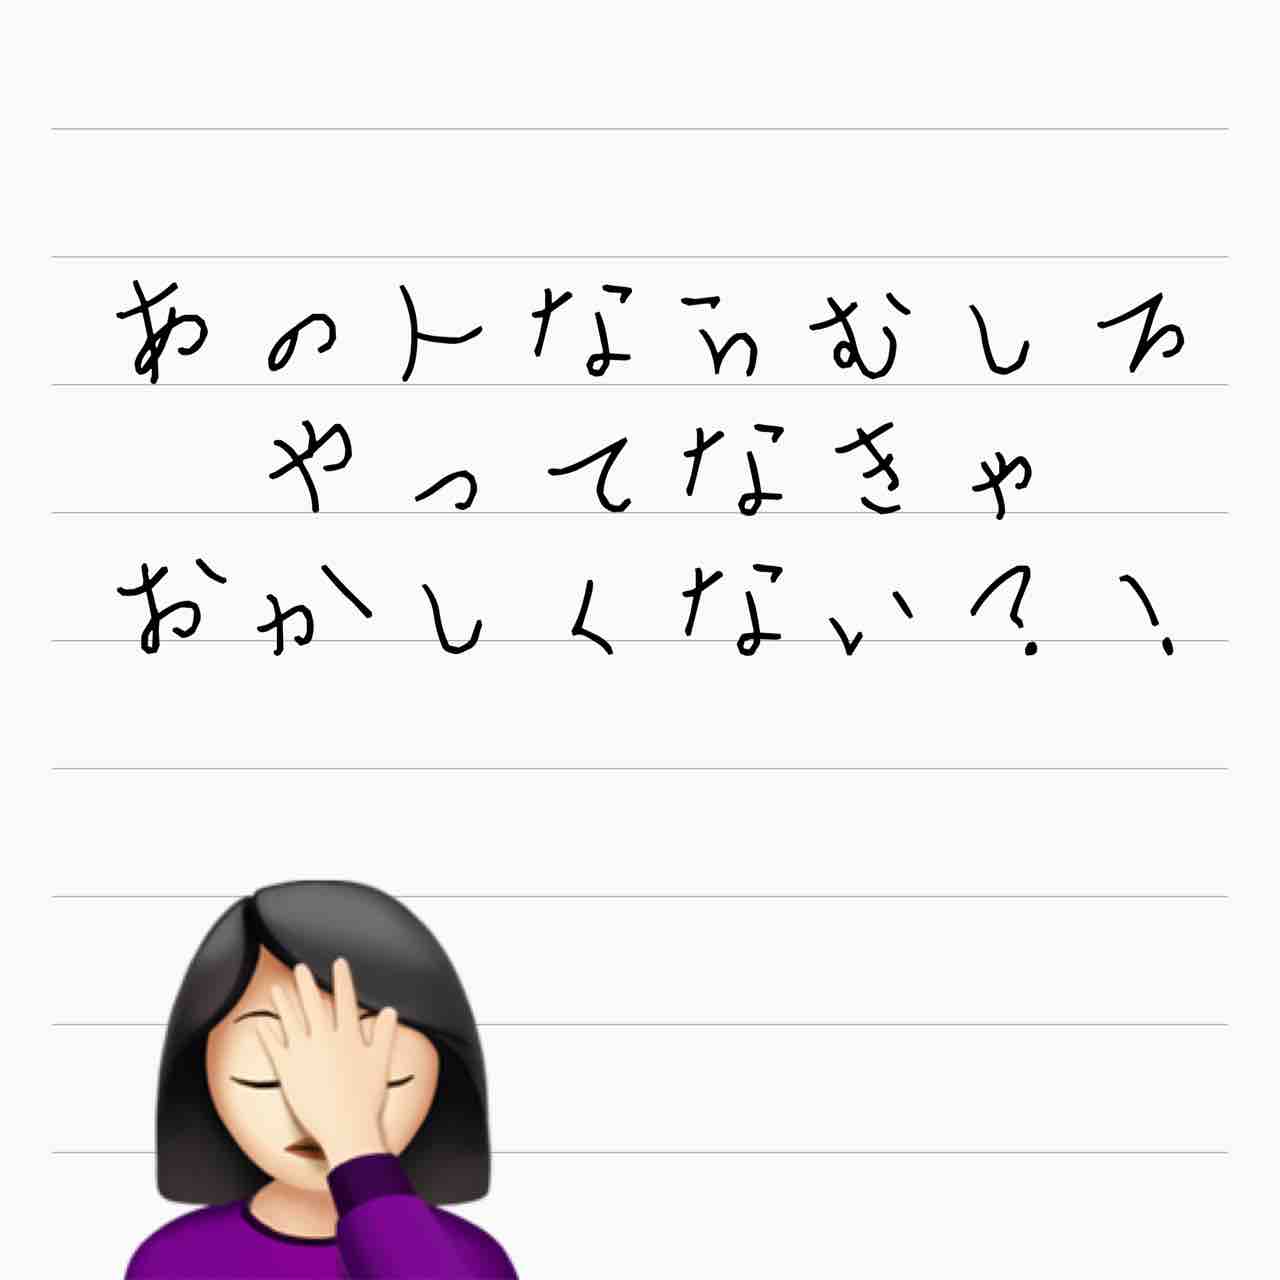 あの人ならむしろ
やってなきゃ
おかしくない？！